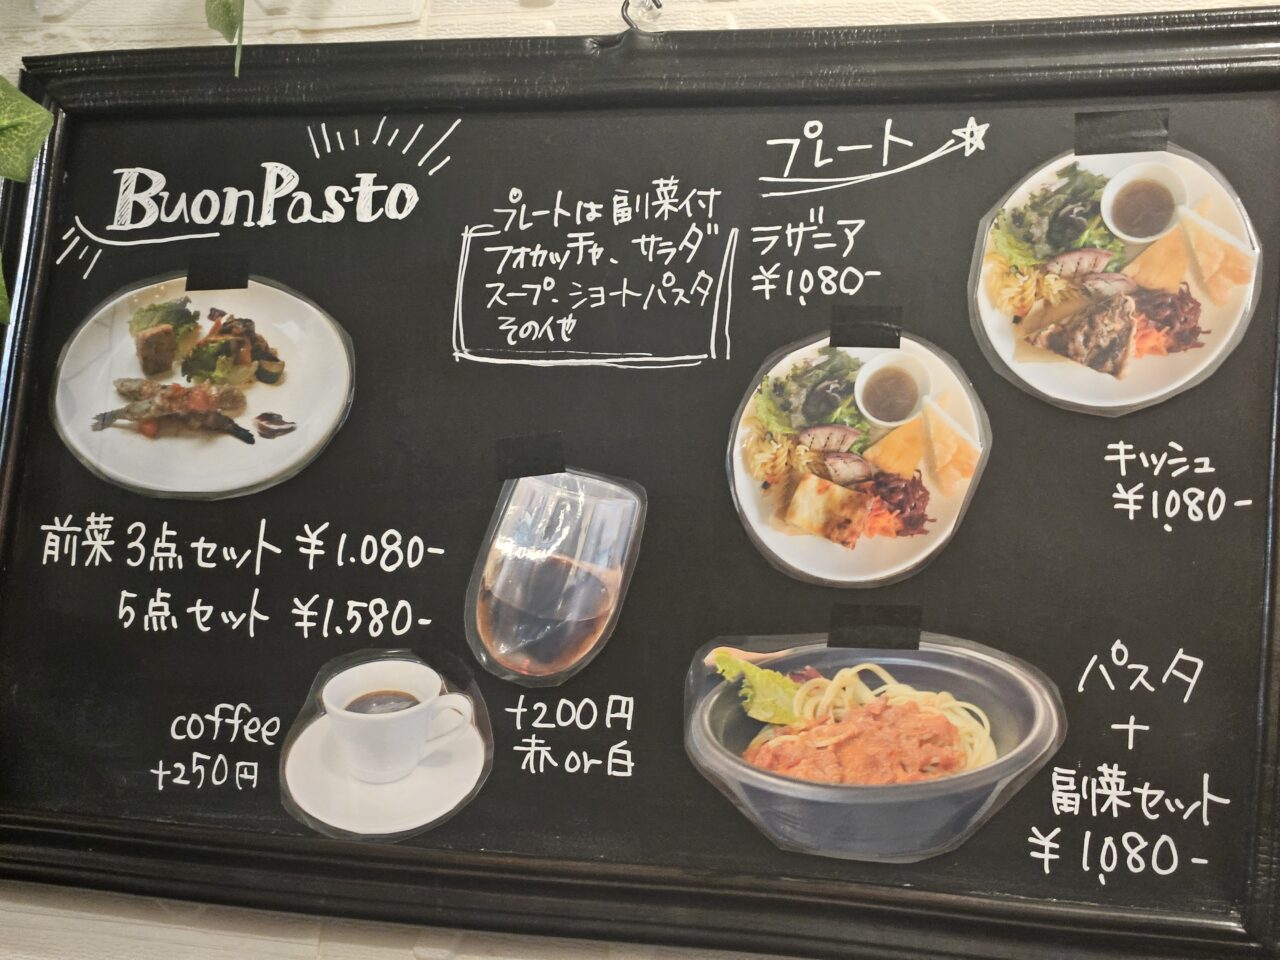 BuonPasto
プレートは副菜付
フォカッチャ、サラダ
スープ、ショートパスタ
その他
プレート
ラザニア
¥1,080-
キッシュ
¥1,080-
前菜3点セット ¥1.080-
5点セット ¥1.580-
coffee
+250円
+200円
赤or白
パスタ
+
副菜セット
¥1,080-